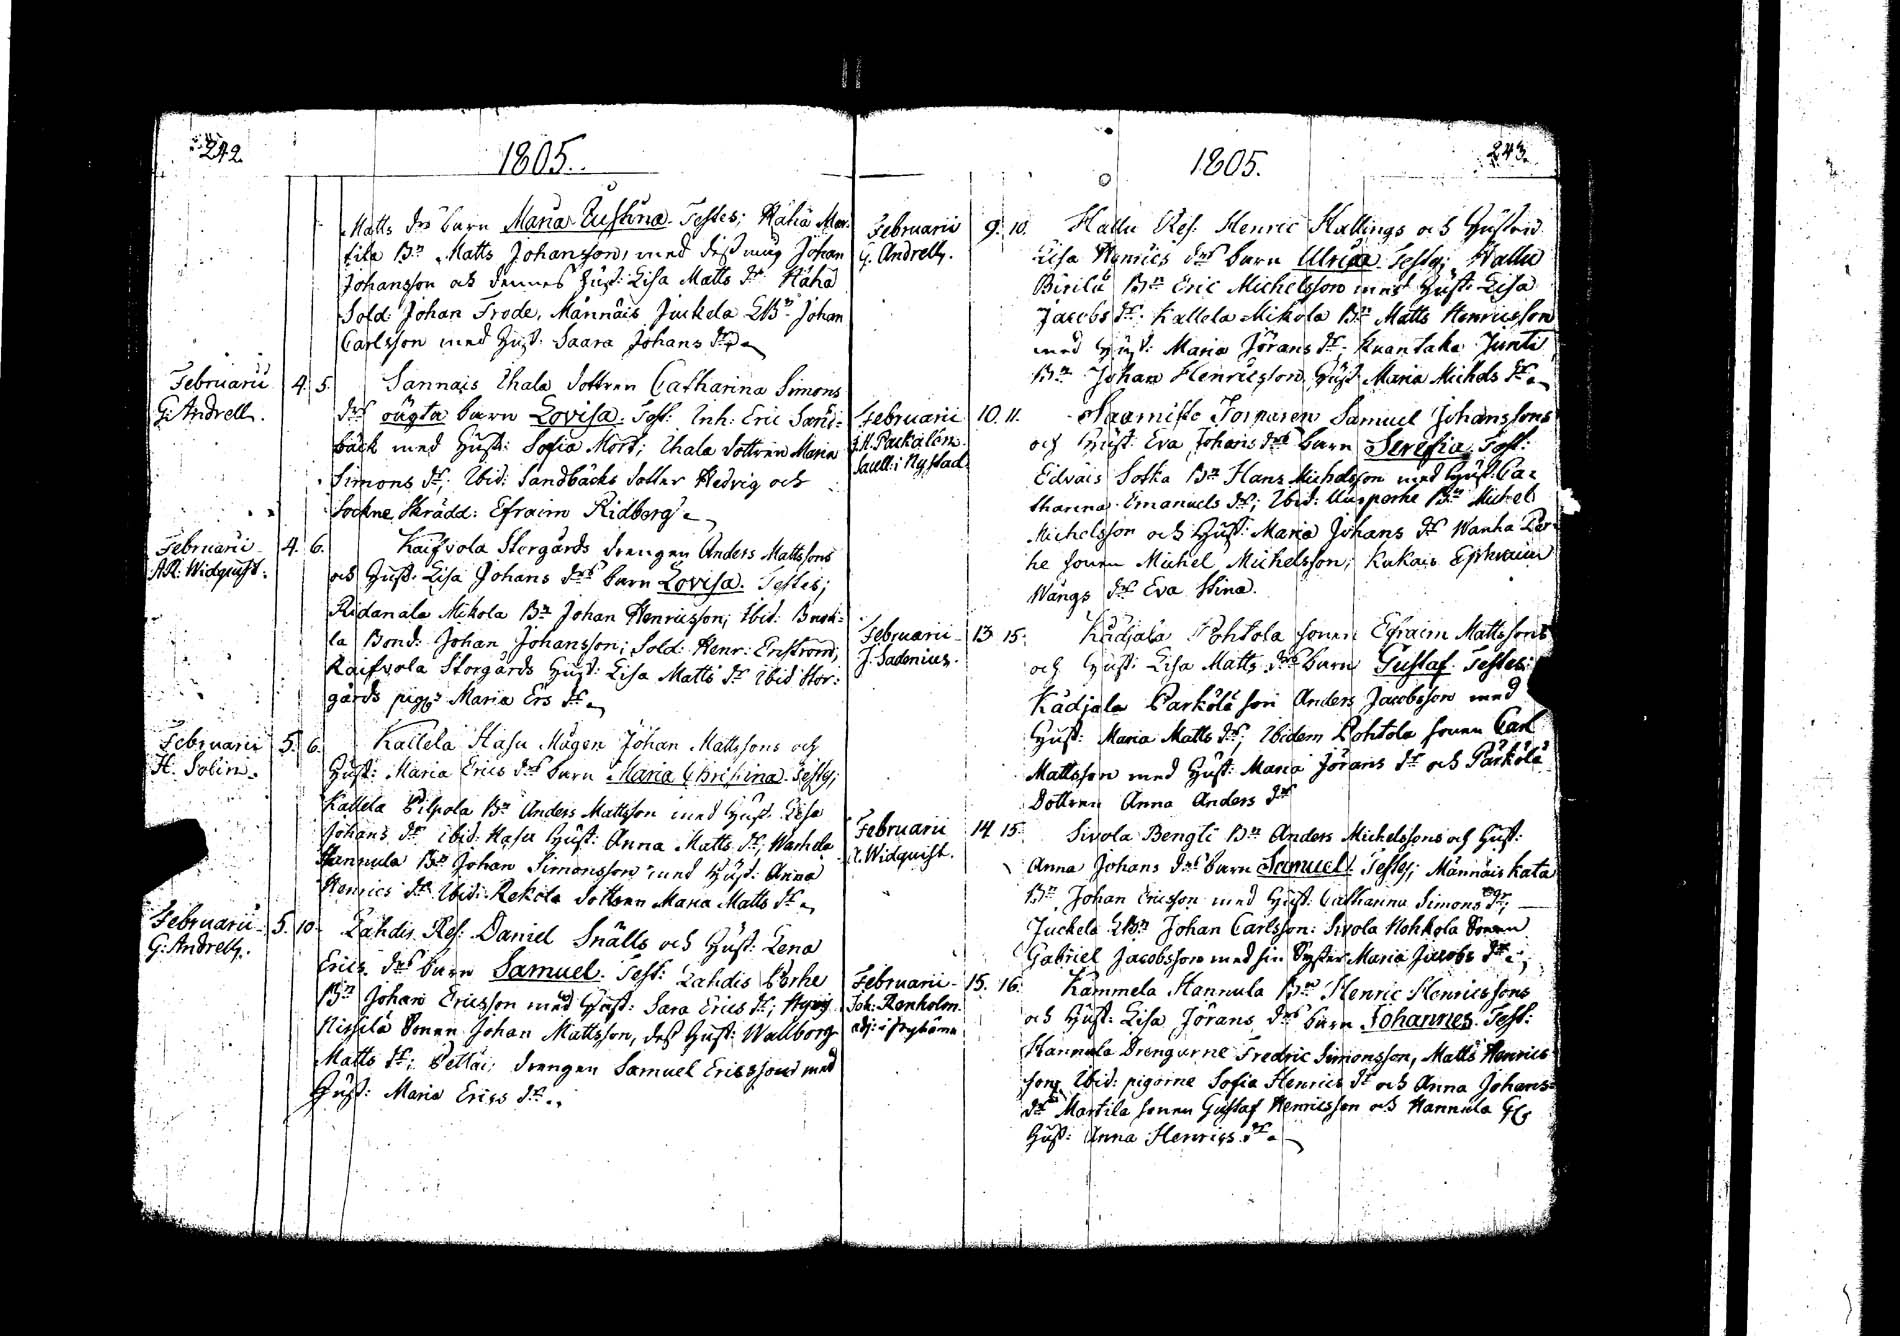 242.
1805.
Matts drs barn Maria Justina. Testes; Hähiä Mar-
tila Bn Matts Johansson, med dess måg Johan
Johansson och dennes Hust: Lisa Matts dr Hähä
Sold: Johan Frode, Männäis Juckela LBn Johan
Carlsson med Hust: Saara Johans dr
Februarii 4. 5. Sannais Uhala dottren Catharina Simons
G: Andrell. drs oägta barn Lovisa. Test: Inh: Eric Sand-
bäck med Hust: Sofia Mört; Uhala dottren Maria
Simons dr; Ibid: Sandbäcks dotter Hedvig och
Sockne Skrädd: Efraim Ridberg
Februarii 4. 6. Kaifvola Storgårds drengen Anders Mattssons
A.R: Widquist. och Hust: Lisa Johans drs barn Lovisa. Testes;
Ridanala Mikola Bn Johan Henricsson; Ibid:
la Bond: Johan Johansson; Sold: Henr: Enström;
Kaifvola Storgårds Hust: Lisa Matts dr Ibid Stor-
gårds pig: Maria Ers dr
Februarii 5. 6. Kallela Hasu Mågen Johan Mattssons och
H. Solin. Hust: Maria Erics drs barn Maria Christina. Testes;
Kallela Pilpola Bn Anders Mattsson med Hust: Lisa
Johans dr ibid: Hasu Hust: Anna Matts dr; Wanhela
Hannula Bn Johan Simonsson med Hust: Anna
Henrics dr Ibid: Rekola dottren Maria Matts dr
Februarii 5. 10. Lahdis Res: Daniel Snälls och Hust: Lena
G: Andrell. Erics drs barn Samuel. Test: Lahdis Perhe
Bn Johan Ericsson med Hust: Sara Erics dr;
Nissilä Sonen Johan Mattsson, dess Hust: Wallborg
Matts dr; Pettäi; drengen Samuel Ericsson med
Hust: Maria Erics dr
243.
1805.
Februarii 9. 10. Hallu Res: Henric Hallings och Hustrus
G. Andrell. Lisa Henrics drs barn Ulrica. Testes; Hallu
Pirilä Bn Eric Michelsson med Hust: Lisa
Jacobs dr; Kallela Mikola Bn Matts Henricsson
med Hust: Maria Jörans dr; Kuantaka Junti
Bn Johan Henricsson, Hust: Maria Michels dr
Februarii 10. 11. Naamisto Torparen Samuel Johanssons
Packalén. och Hust: Eva Johans drs barn Serefia. Test:
Sacell: i Nystad. Edväis Sotka Bn Hans Michelsson med Hust: Ca-
tharina Emanuels dr; Ibid: Uusperhe Bn Michel
Michelsson och Hust: Maria Johans dr Wanha Per-
he sonen Michel Michelsson; Kukais Ephraim
Wångs dr Eva Stina.
Februarii 13 15. Kådjala Pohtola sonen Efraim Mattssons
J. Sadenius. och Hust: Lisa Matts drs barn Gustaf. Testes:
Kådjala Parkölä son Anders Jacobsson med
Hust: Maria Matts dr; Ibidem Pohtola sonen Carl
Mattsson med Hust: Maria Jörans dr och Pärkölä
Dottren Anna Anders dr
Februarii 14 15. Sivola Bengti Bn Anders Michelssons och Hust:
Widquist. Anna Johans drs barn Samuel. Testes; Männäis Kata
Bn Johan Ericsson med Hust: Catharina Simons dr;
Juckela LBn Johan Carlsson: Sivola Hohkola Sonen
Gabriel Jacobsson med sin Syster Maria Jacobs dr
Februarii 15. 16. Kammela Hannula Bn Henric Henricssons
Joh: Renholm. och Hust: Lisa Jörans drs barn Johannes. Test:
adj: i Hannula Drengarne Fredric Simonsson, Matts Henrics-
son, Ibid: pigorne Sofia Henrics dr och Anna Johans-
dr Martila sonen Gustaf Henricsson och Hannula
Hust: Anna Henrics dr